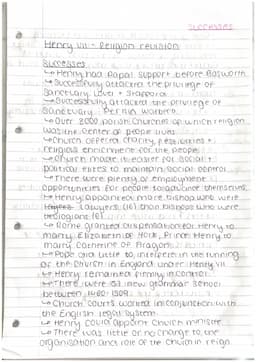 Successes
Henry VII - Religion revision
Successes
↳ Henry had Papal support before Bosworth
↳ Successfully attacked the privilege of
Sanctuary Lovell + Staffords
↳ Successfully attacked the privilege of
Sanctuary Perkin Warbeck
↳ Over 8000 Parish Churches of which religion
was the center of people lives
↳ Church offered charity, festivities +
religious enrichment for the people
↳ Church made it easier for social +
political elites to maintain social control
↳ There were plenty of employment
opportunities for people to advance themselves
↳ Henry appointed more bishops who were
lawyers (16) than bishops who were
theologians (6)
↳ Rome granted dispensation for Henry to
marry Elizabeth of York, Prince Henry to
marry Catherine of Aragon
↳ Pope did little to interfere in the running
of the Church in England under Henry VII
↳ Henry remained firmly in control
↳ There were 53 new grammar school
between 1460-1509
↳ Church courts worked in conjunction with
the English legal system
↳ Henry could appoint Church ministers
↳ There was little or no change to the
organisation and role of the Church in reign